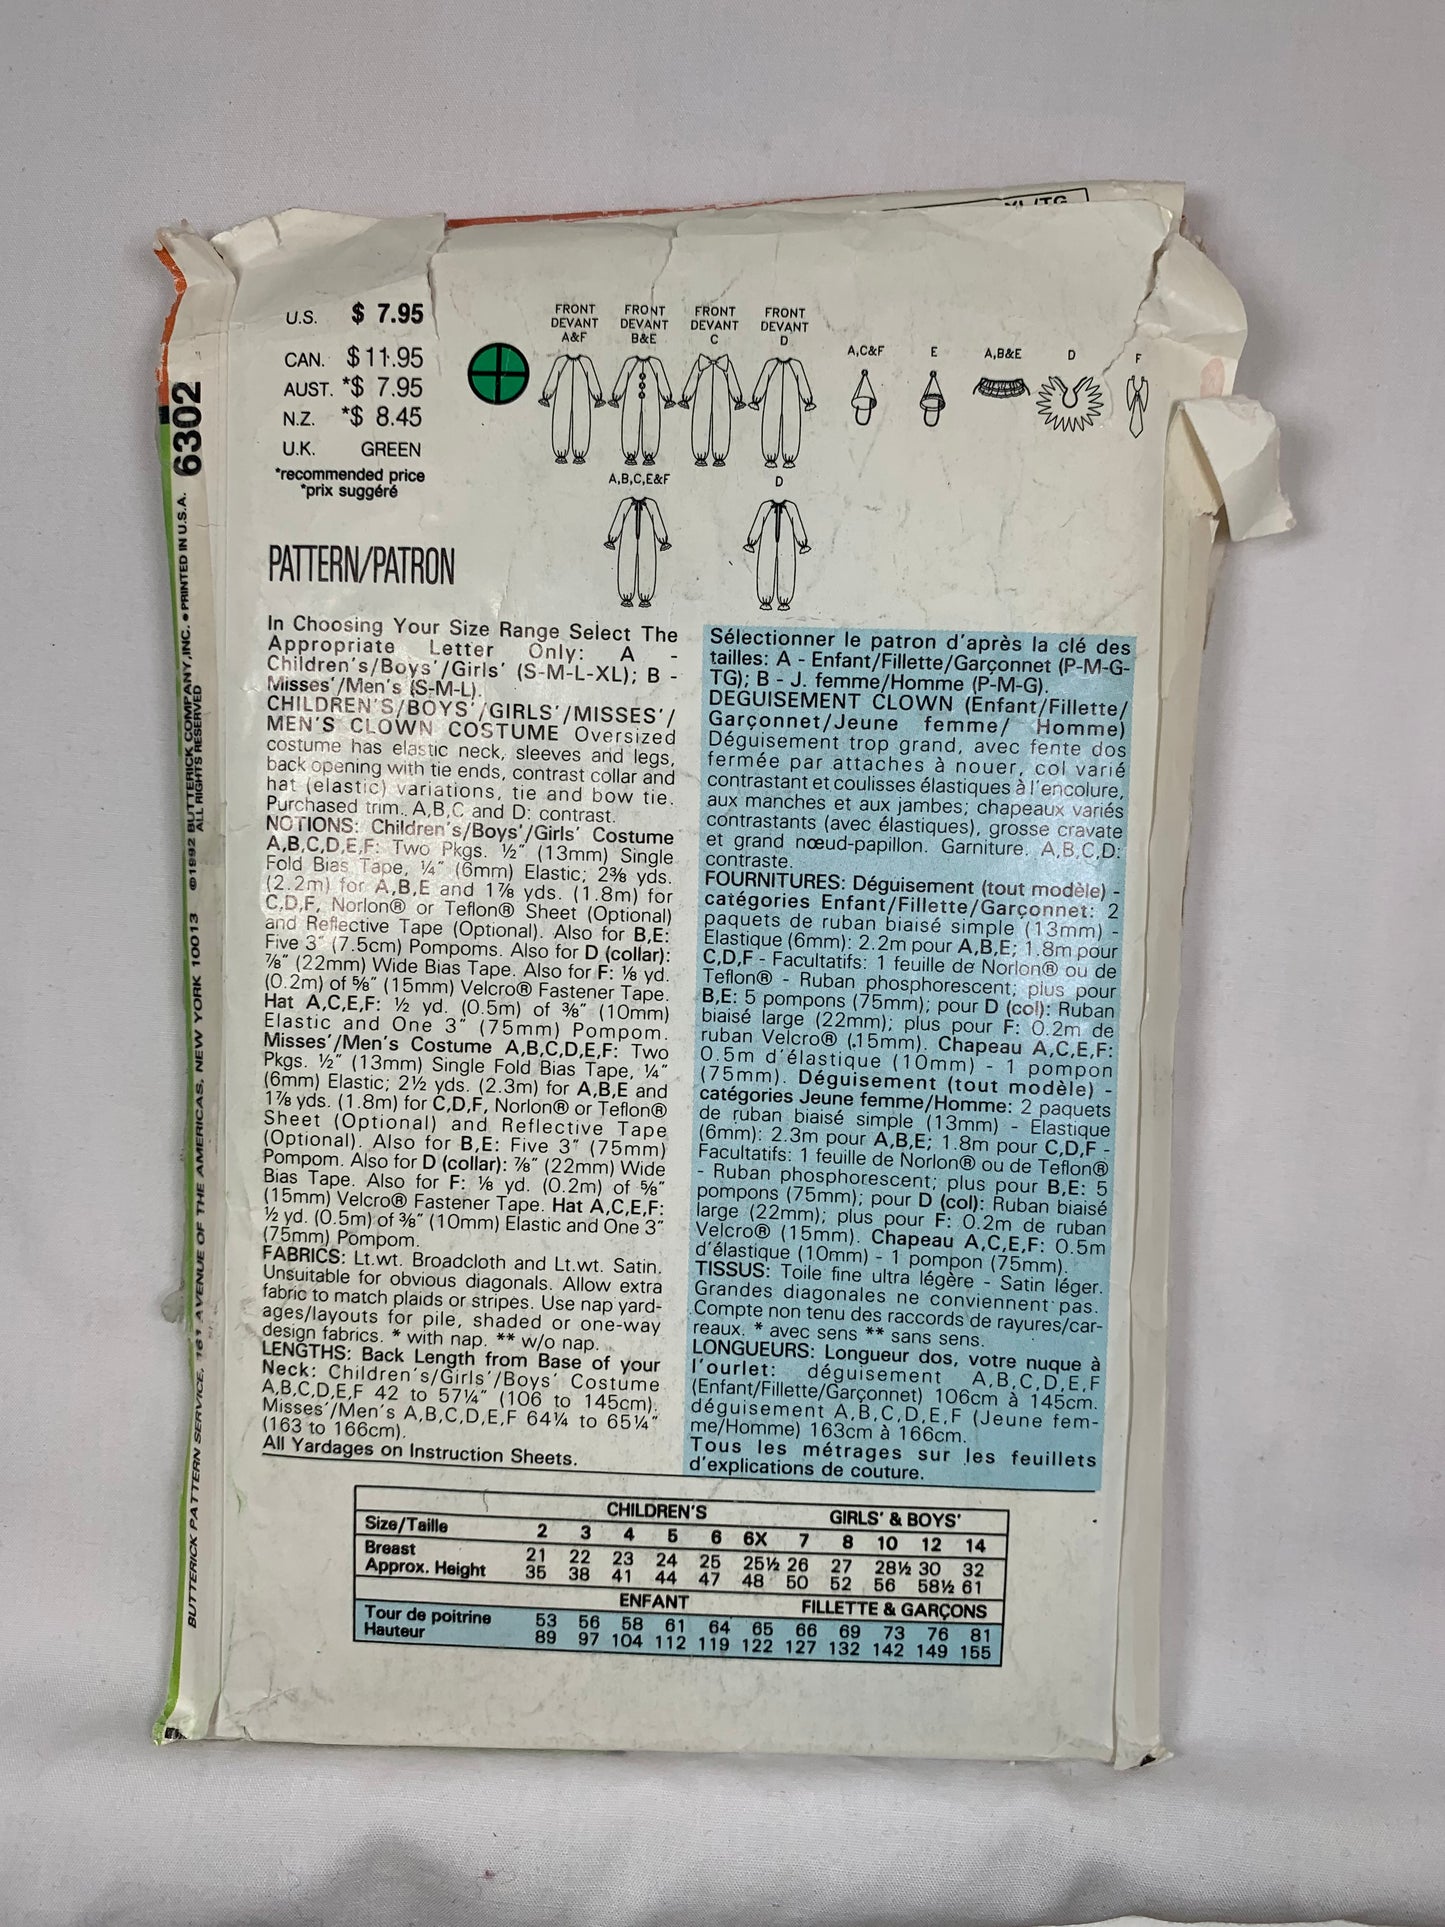 XL/TG
U.S. $ 7.95
CAN. $11.95
AUST. *$ 7.95
N.Z. *$ 8.45
U.K. GREEN
*recommended price
*prix suggéré
FRONT
DEVANT
A&F
FRONT
DEVANT
B&E
FRONT
DEVANT
C
FRONT
DEVANT
D
A,C&F
E
A,B&E
D
F
A,B,C,E&F
D
PATTERN/PATRON
In Choosing Your Size Range Select The
Appropriate Letter Only: A -
Children's/Boys'/Girls' (S-M-L-XL); B -
Misses'/Men's (S-M-L).
CHILDREN'S/BOYS'/GIRLS'/MISSES'/
MEN'S CLOWN COSTUME Oversized
costume has elastic neck, sleeves and legs,
back opening with tie ends, contrast collar and
hat (elastic) variations, tie and bow tie.
Purchased trim. A,B,C and D: contrast.
NOTIONS: Children's/Boys'/Girls' Costume
A,B,C,D,E,F: Two Pkgs. ½" (13mm) Single
Fold Bias Tape, ¼" (6mm) Elastic; 2⅜ yds.
(2.2m) for A,B,E and 1⅞ yds. (1.8m) for
C,D,F, Norlon® or Teflon® Sheet (Optional)
and Reflective Tape (Optional). Also for B,E:
Five 3" (7.5cm) Pompoms. Also for D (collar):
⅞" (22mm) Wide Bias Tape. Also for F: ⅛ yd.
(0.2m) of ⅝" (15mm) Velcro® Fastener Tape.
Hat A,C,E,F: ½ yd. (0.5m) of ⅜" (10mm)
Elastic and One 3" (75mm) Pompom.
Misses'/Men's Costume A,B,C,D,E,F: Two
Pkgs. ½" (13mm) Single Fold Bias Tape, ¼"
(6mm) Elastic; 2½ yds. (2.3m) for A,B,E and
1⅞ yds. (1.8m) for C,D,F, Norlon® or Teflon®
Sheet (Optional) and Reflective Tape
(Optional). Also for B,E: Five 3" (75mm)
Pompom. Also for D (collar): ⅞" (22mm) Wide
Bias Tape. Also for F: ⅛ yd. (0.2m) of ⅝"
(15mm) Velcro® Fastener Tape. Hat A,C,E,F:
½ yd. (0.5m) of ⅜" (10mm) Elastic and One 3"
(75mm) Pompom.
FABRICS: Lt.wt. Broadcloth and Lt.wt. Satin.
Unsuitable for obvious diagonals. Allow extra
fabric to match plaids or stripes. Use nap yard-
ages/layouts for pile, shaded or one-way
design fabrics. * with nap. ** w/o nap.
LENGTHS: Back Length from Base of your
Neck: Children's/Girls'/Boys' Costume
A,B,C,D,E,F 42 to 57¼" (106 to 145cm).
Misses'/Men's A,B,C,D,E,F 64¼ to 65¼"
(163 to 166cm).
All Yardages on Instruction Sheets.
Sélectionner le patron d'après la clé des
tailles: A - Enfant/Fillette/Garçonnet (P-M-G-
TG); B - J. femme/Homme (P-M-G).
DEGUISEMENT CLOWN (Enfant/Fillette/
Garçonnet/Jeune femme/ Homme)
Déguisement trop grand, avec fente dos
fermée par attaches à nouer, col varié
contrastant et coulisses élastiques à l'encolure,
aux manches et aux jambes; chapeaux variés
contrastants (avec élastiques), grosse cravate
et grand nœud-papillon. Garniture. A,B,C,D:
contraste.
FOURNITURES: Déguisement (tout modèle) -
catégories Enfant/Fillette/Garçonnet: 2
paquets de ruban biaisé simple (13mm) -
Elastique (6mm): 2.2m pour A,B,E; 1.8m pour
C,D,F - Facultatifs: 1 feuille de Norlon® ou de
Teflon® - Ruban phosphorescent; plus pour
B,E: 5 pompons (75mm); pour D (col): Ruban
biaisé large (22mm); plus pour F: 0.2m de
ruban Velcro® (.15mm). Chapeau A,C,E,F:
0.5m d'élastique (10mm) - 1 pompon
(75mm). Déguisement (tout modèle) -
catégories Jeune femme/Homme: 2 paquets
de ruban biaisé simple (13mm) - Elastique
(6mm): 2.3m pour A,B,E; 1.8m pour C,D,F -
Facultatifs: 1 feuille de Norlon® ou de Teflon®
- Ruban phosphorescent; plus pour B,E: 5
pompons (75mm); pour D (col): Ruban biaisé
large (22mm); plus pour F: 0.2m de ruban
Velcro® (15mm). Chapeau A,C,E,F: 0.5m
d'élastique (10mm) - 1 pompon (75mm).
TISSUS: Toile fine ultra légère - Satin léger.
Grandes diagonales ne conviennent pas.
Compte non tenu des raccords de rayures/car-
reaux. * avec sens ** sans sens.
LONGUEURS: Longueur dos, votre nuque à
l'ourlet: déguisement A,B,C,D,E,F
(Enfant/Fillette/Garçonnet) 106cm à 145cm.
déguisement A,B,C,D,E,F (Jeune fem-
me/Homme) 163cm à 166cm.
Tous les métrages sur les feuillets
d'explications de couture.
CHILDREN'S GIRLS' & BOYS'
Size/Taille 2 3 4 5 6 6X 7 8 10 12 14
Breast 21 22 23 24 25 25½ 26 27 28½ 30 32
Approx. Height 35 38 41 44 47 48 50 52 56 58½ 61
ENFANT FILLETTE & GARÇONS
Tour de poitrine 53 56 58 61 64 65 66 69 73 76 81
Hauteur 89 97 104 112 119 122 127 132 142 149 155
6302
BUTTERICK PATTERN SERVICE, 161 AVENUE OF THE AMERICAS, NEW YORK 10013 ©1992 BUTTERICK COMPANY, INC. • PRINTED IN U.S.A.
ALL RIGHTS RESERVED